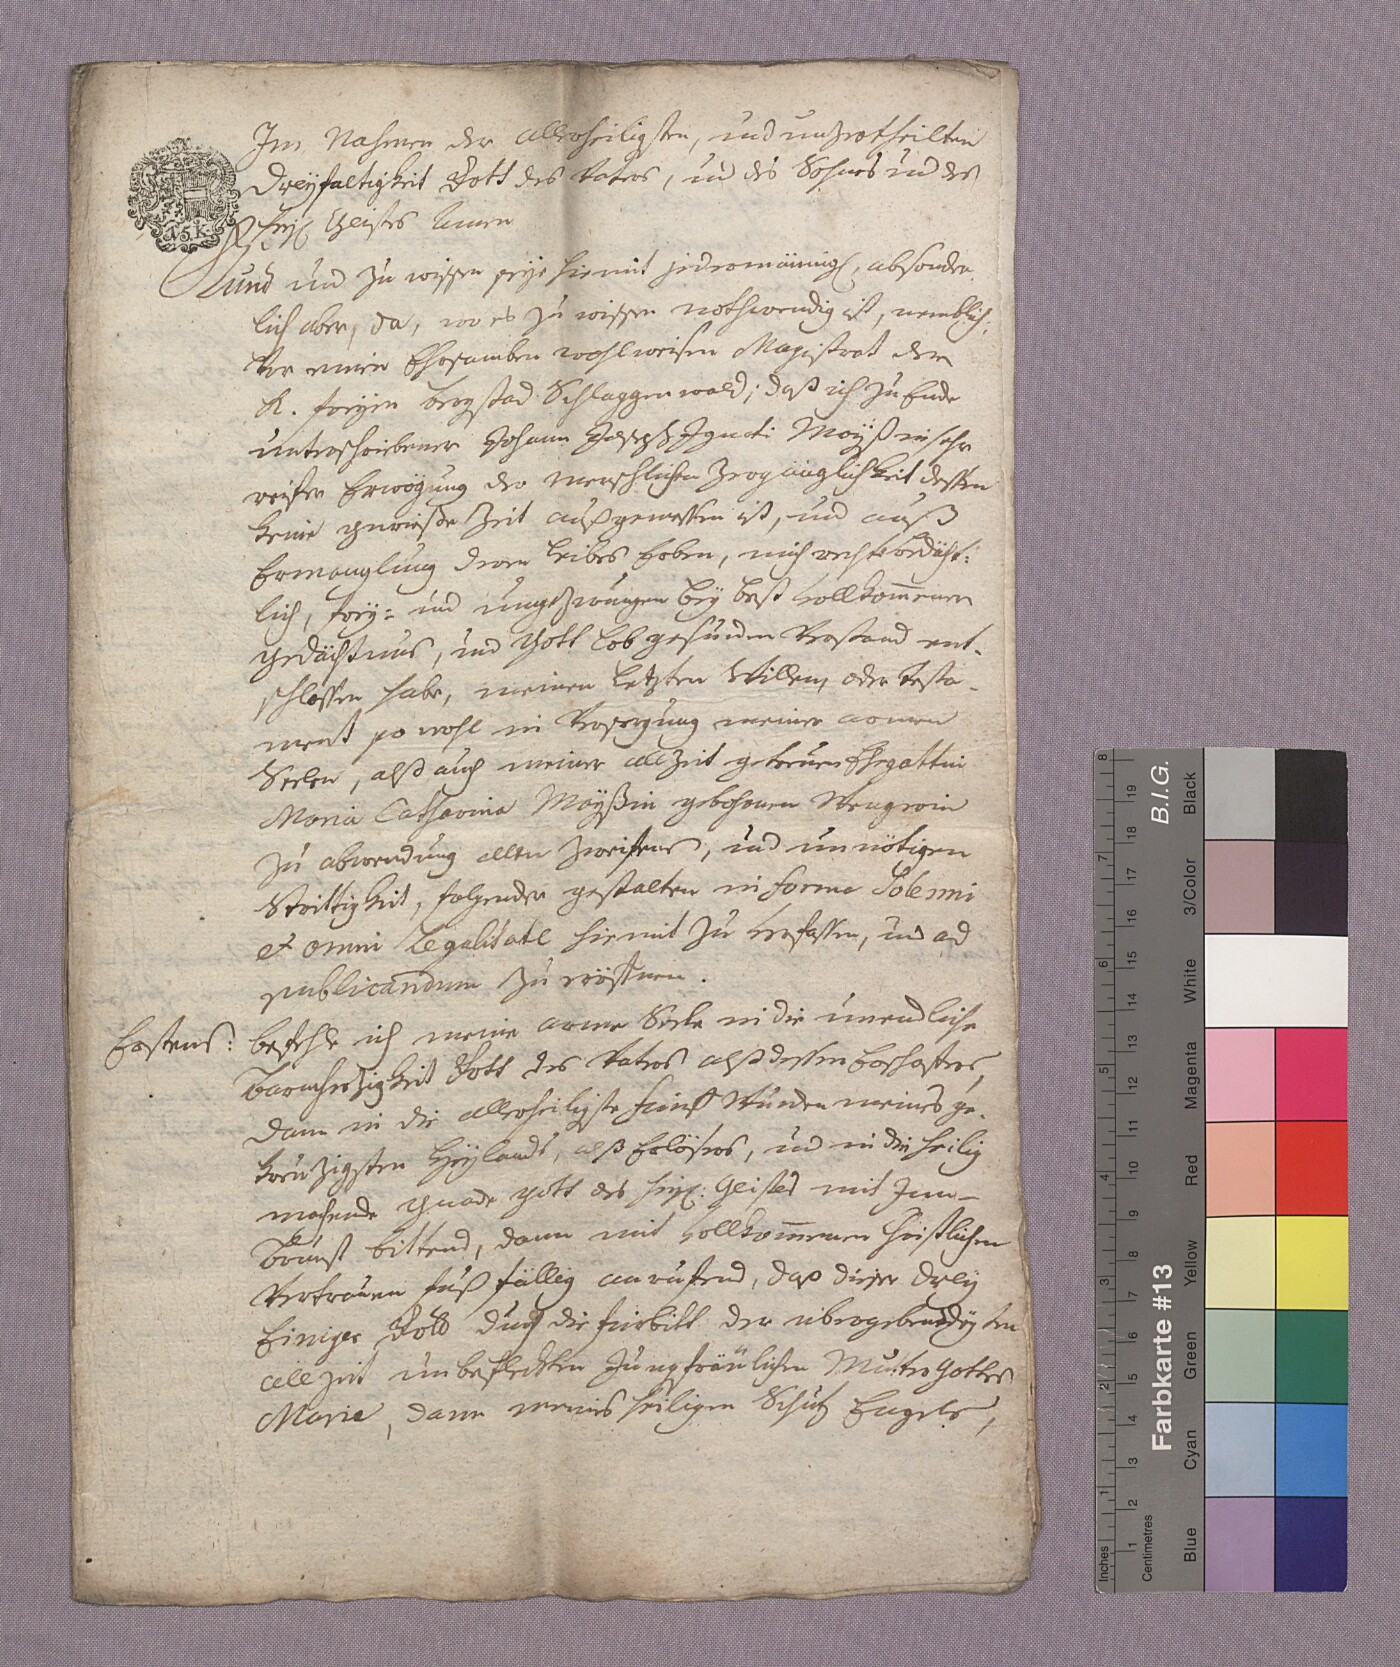 Im Nahmen der allerheiligsten, und unzertheilten
Dreyfaltigkeit Gott des Vaters, und des Sohnes und des
Heyl: Geistes Amen
15 K
Kund und zu wissen seye hiemit jedermännigl, absonder
lich aber, da, wo es zu wissen nothwendig ist, nemblich:
Vor einen Ehrsamben wohlweisen Magistrat der
K. freyen Bergstad Schlaggenwald; daß ich zu Ende
unterschriebener Johann Joseph Ignati Moÿß in sehr
reifer Erwögung der menschlichen Zergänglichkeit dessen
keine gewieße Zeit außgemessen ist, und auß
Ermanglung deren Leibes Erben, mich rechtbedächt:
lich, freÿ: und ungezwungen beÿ best vollkom̅enen
Gedächtnus, und Gott lob gesunden Verstand ent-
schlossen habe, meinen letzten Willen, oder Testa-
ment so wohl in Versorgung meiner armen
Seelen, alß auch meiner allzeit getreuen Ehegattin
Maria Catharina Moÿßin gebohrnen Wengerin
zu abwendung allen Zweifens, und unnötigen
Strittigkeit, folgender gestalten in forma Solenni
et omni Legalitate hiemit zu verfassen, und ad
publicandum zu eröffnen.
Erstens: befehle ich meine arme Seele in die unendliche
Barmherzigkeit Gott des Vaters alß dessen Erschaffers,
dann in die allerheiligste fünff Wunden meines ge-
kreuzigsten Heÿlands, alß Erlösers, und in die heilig
machende Gnade Gott des heyl: Geistes mit Inn-
brunst bittend, dann mit vollkom̅enen Christlichen
Vertrauen fußfällig anrufend, daß dieser dreÿ
Einiger Gott durch die fürbitt der übergebenedeÿten
allzeit unbeflekten Jungfräulichen Mutter Gottes
Maria, dann meines heiligen Schutz Engels,